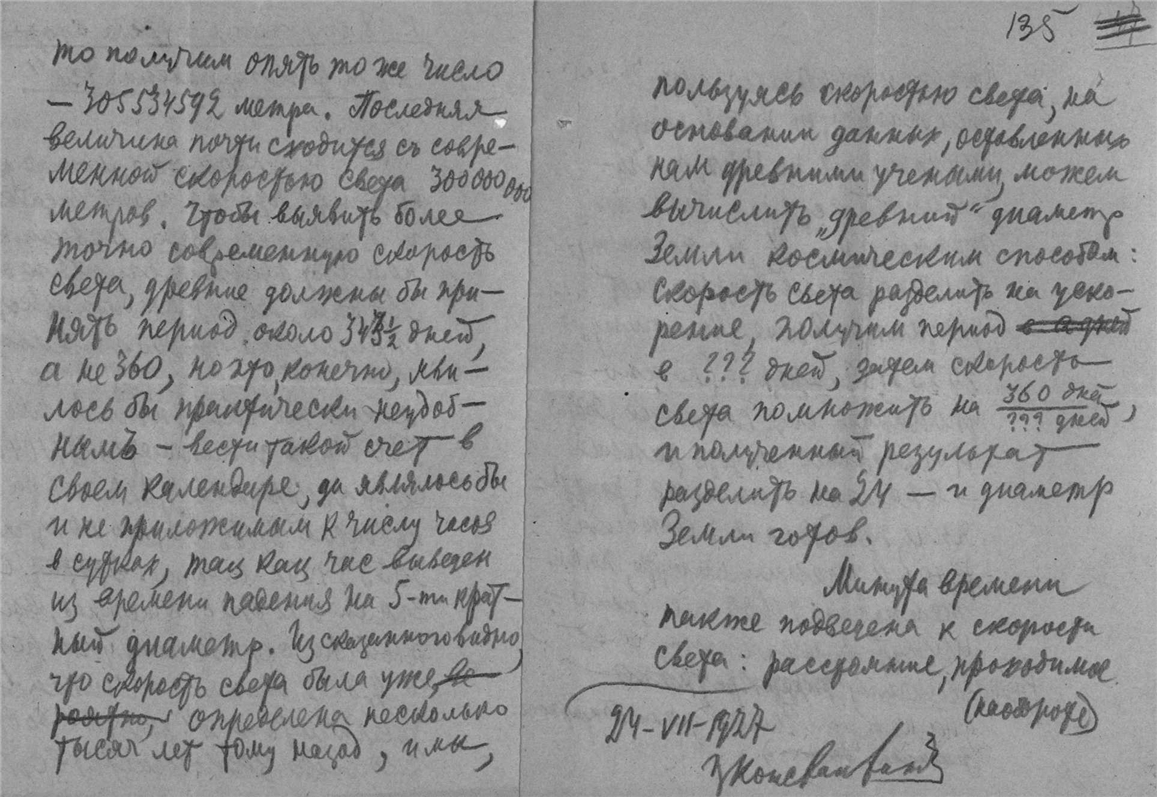 то получим опять то же число
— 305534592 метра. Последняя
величина почти сходится съ совре-
менной скоростью света 300000000
метров. Чтобы выявить более
точно современную скорость
света, древние должны бы при-
нять период около 343½ дней,
а не 360, но это, конечно, яви-
лось бы практически неудоб-
нымъ — вести такой счет в
своем календаре, да являлось бы
и не приложимым к числу часов
в сутках, так как час выведен
из времени падения на 5-ти крат-
ный диаметр. Из сказанного видно,
что скорость света была уже ве-
роятно, определена несколько
тысяч лет тому назад, и мы,
135
пользуясь скоростью света, на
основании данных, оставленных
нам древними учеными, можем
вычислить „древний“ диаметр
Земли космическим способом:
скорость света разделить на уско-
рение, получим период
в ??? дней, затем скорость
света помножить на 360 дней / ??? дней,
и полученный результат
разделить на 24 — и диаметр
Земли готов.
Минута времени
также подведена к скорости
света: расстояние, проходимое
(на обороте)
24-VII-1927